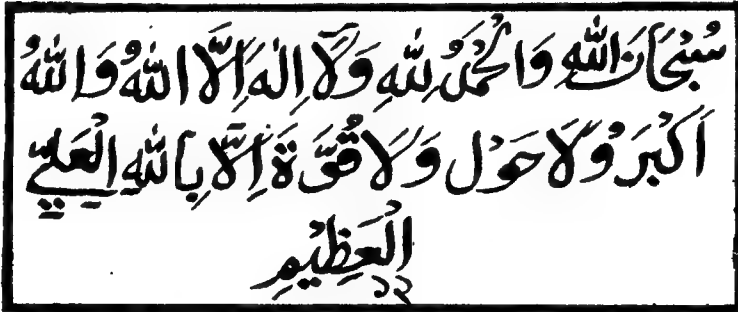 سُبْحَانَ اللهِ وَالْحَمْدُ لِلهِ وَلَآ اِلٰهَ اِلَّا اللهُ وَاللهُ
اَكْبَرَ وْلَا حَوْلَ وَلَا قُوَّةَ اِلَّا بِاللهِ الْعَلِيِّ
الْعَظِيْمِ